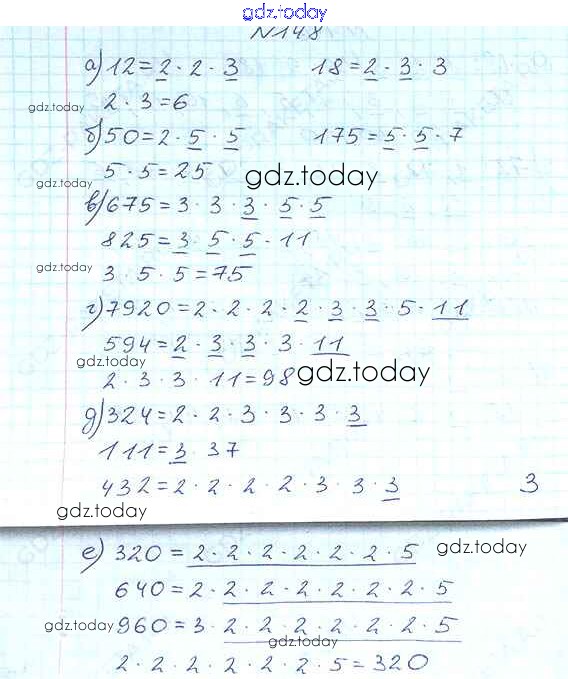 gdz.today
N148
а) 12 = 2 · 2 · 3 18 = 2 · 3 · 3
gdz.today 2 · 3 = 6
б) 50 = 2 · 5 · 5 175 = 5 · 5 · 7
gdz.today 5 · 5 = 25 gdz.today
в) 675 = 3 · 3 · 3 · 5 · 5
825 = 3 · 5 · 5 · 11
gdz.today 3 · 5 · 5 = 75
г) 7920 = 2 · 2 · 2 · 2 · 3 · 3 · 5 · 11
594 = 2 · 3 · 3 · 3 · 11
gdz.today
2 · 3 · 3 · 11 = 98 gdz.today
д) 324 = 2 · 2 · 3 · 3 · 3 · 3
111 = 3 · 37
432 = 2 · 2 · 2 · 2 · 3 · 3 · 3 3
gdz.today
е) 320 = 2 · 2 · 2 · 2 · 2 · 2 · 5 gdz.today
640 = 2 · 2 · 2 · 2 · 2 · 2 · 2 · 5
gdz.today 960 = 3 · 2 · 2 · 2 · 2 · 2 · 2 · 5
gdz.today
2 · 2 · 2 · 2 · 2 · 2 · 5 = 320